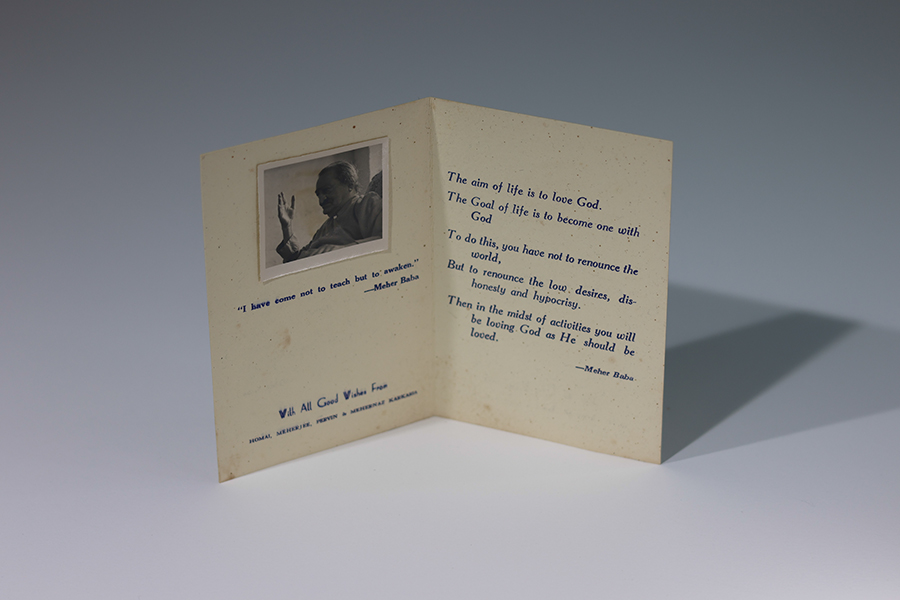 "I have come not to teach but to awaken."
—Meher Baba
With All Good Wishes From
HOMAI, MEHERJEE, PERVIN & MEHERNAZ KARKARIA
The aim of life is to love God.
The Goal of life is to become one with
God
To do this, you have not to renounce the
world,
But to renounce the low desires, dis-
honesty and hypocrisy.
Then in the midst of activities you will
be loving God as He should be
loved.
—Meher Baba